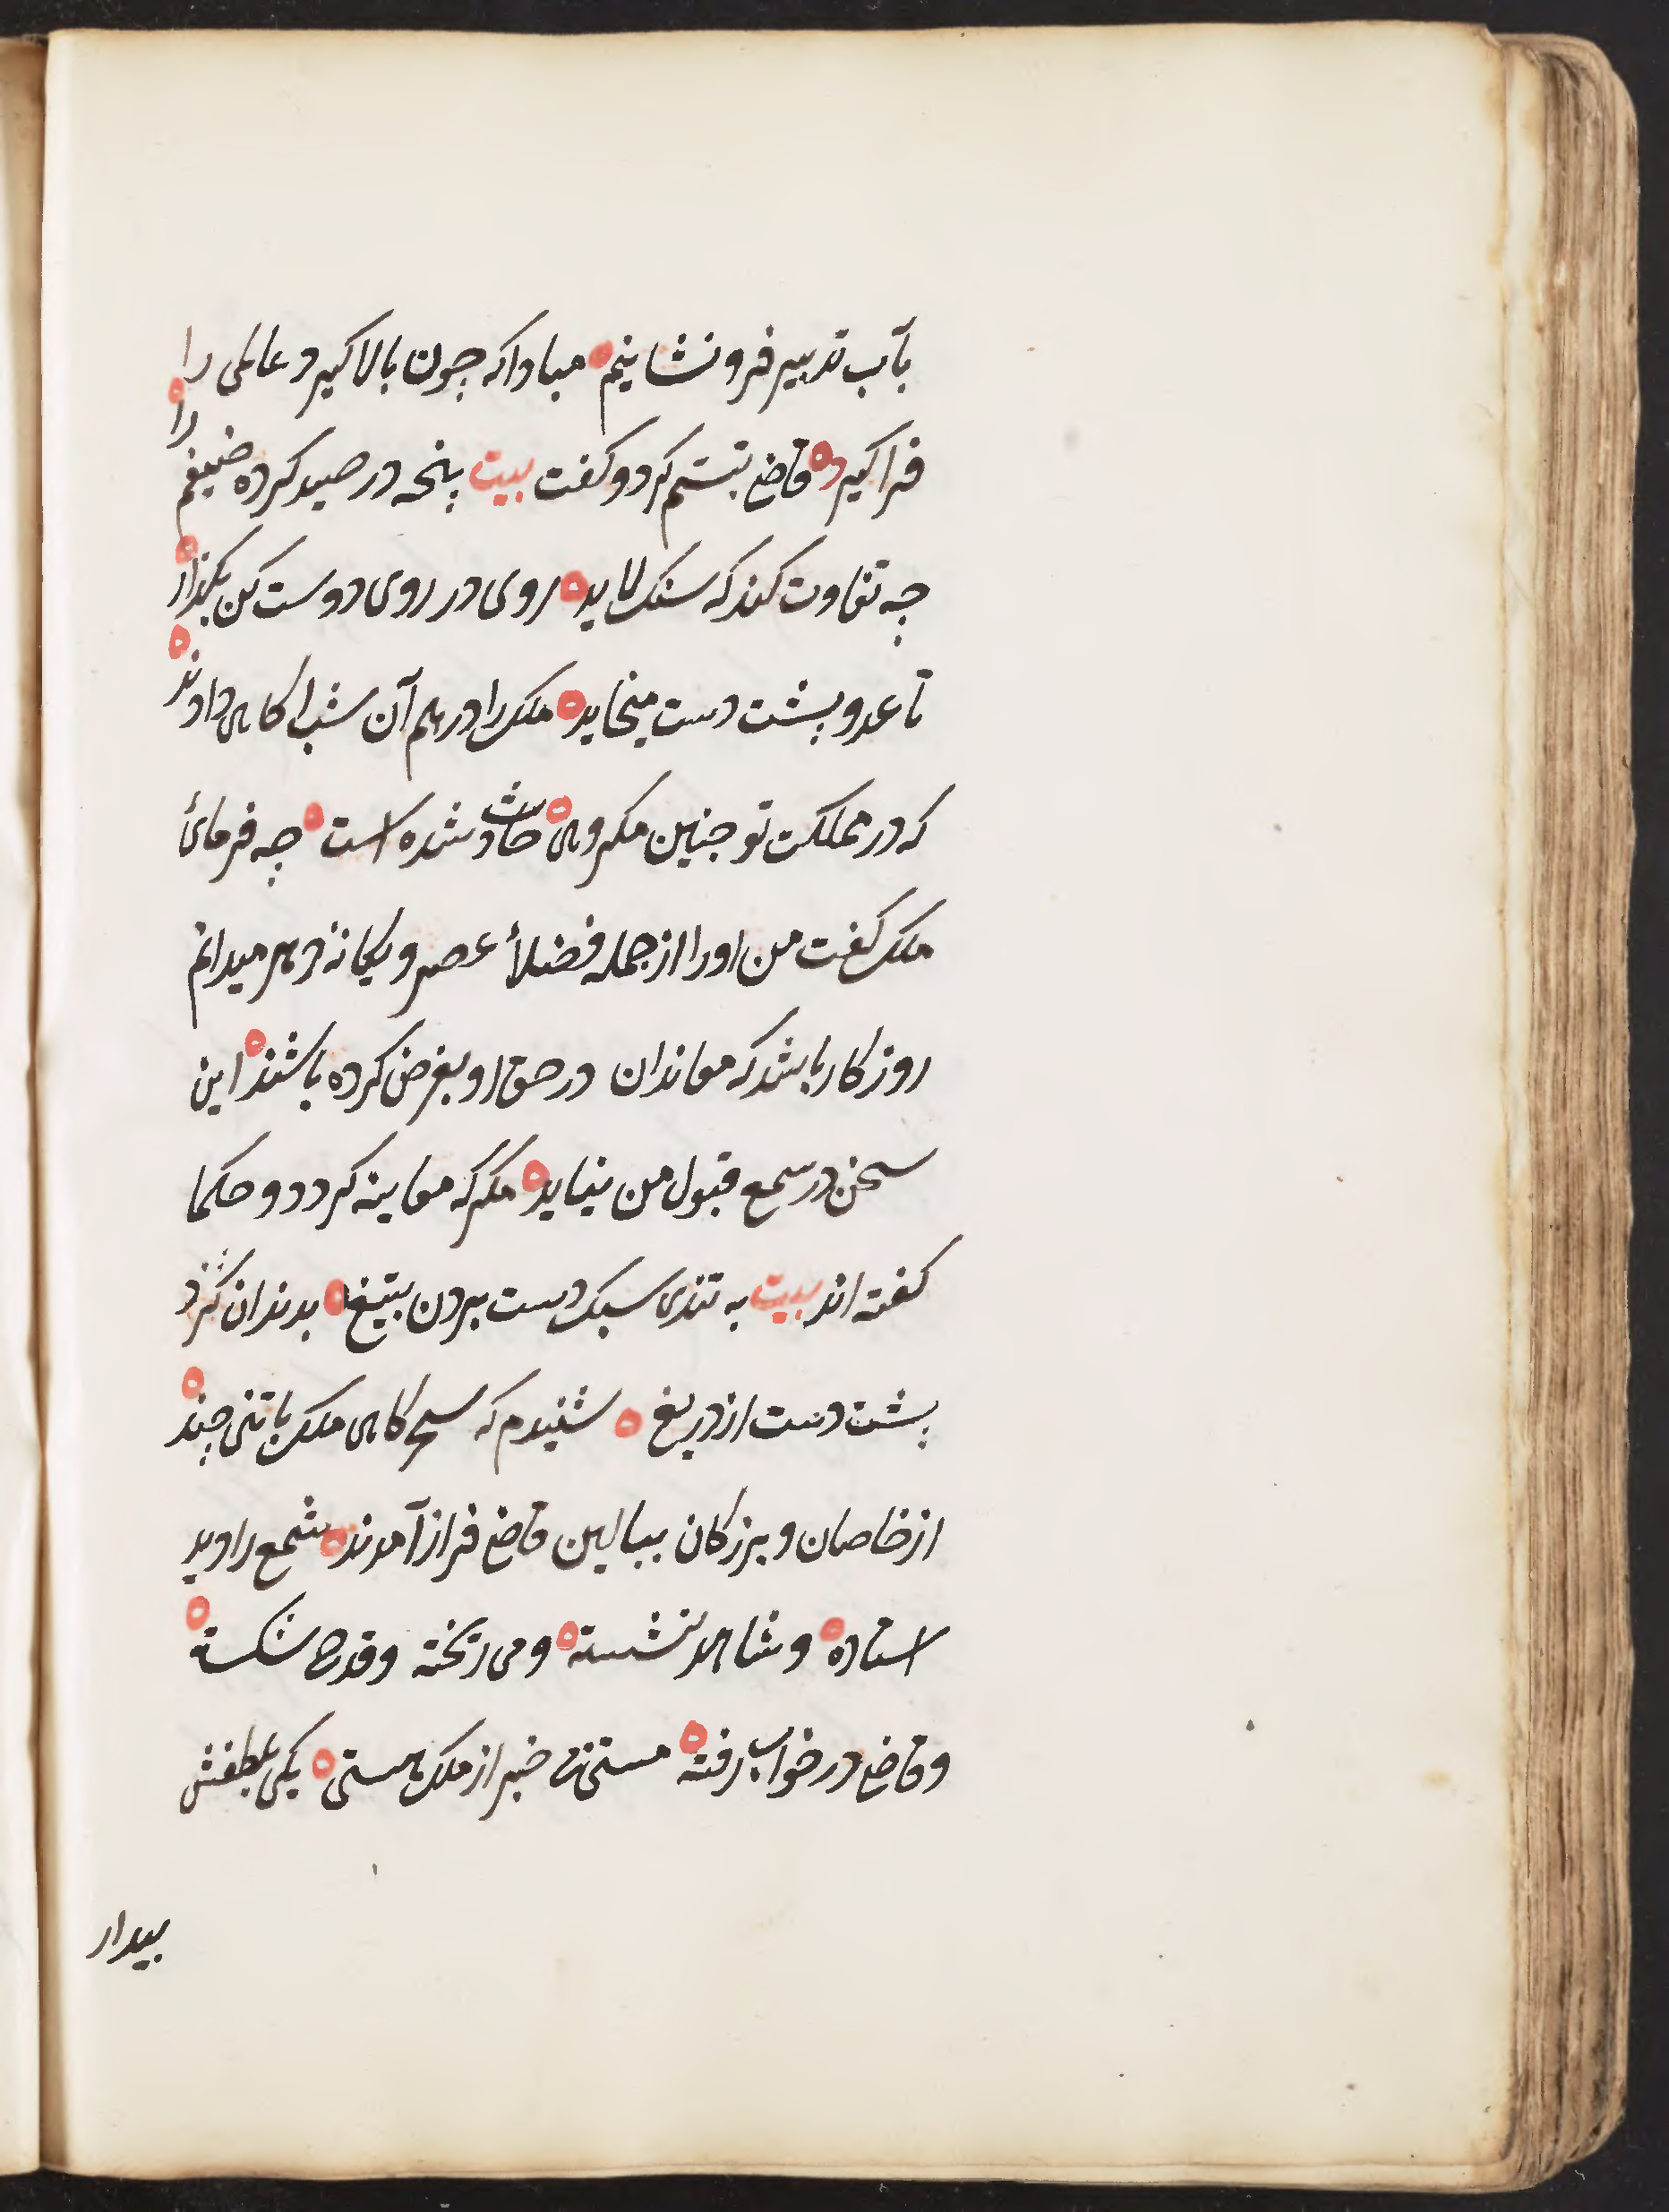 بآب تدبیر فرونشاینم مبادا که جون بالا کیرد عاملی را
فرا کیرد قاضی تبسّم کرد و کفت بیت پنجه در صید کرده ضیغم را
چه تفاوت کند که سنک لاید روی در روی دوست کن بکذار
تا عدو پشت دست میخاید ملک را در هم آن شب اکاهی دادند
که در مملکت تو جنین مکروهی حادث شده است چه فرمائ
ملک کفت من اورا از جمله فضلأ عصر و یکانهٔ دهر میدانم
روزکار باشد که معاندان در حق او بغرض کرده باشند این
سخن در سمع قبول من نیاید مکر که معاینه کردد و حکما
کفته اند بیت به تندی سبک دست بردن بتیغ بدندان کزد
پشت دست از دریغ شنیدم که سحرکاهی ملک با تنی چند
از خاصان و بزرکان ببالین قاضی فراز آمدند شمع را دید
استاده و شاهد نشسته و می ریخته و قدح شکسته
و قاضی در خواب رفته مستی نه خبر از ملک هستی یکی بلطفش
بیدار